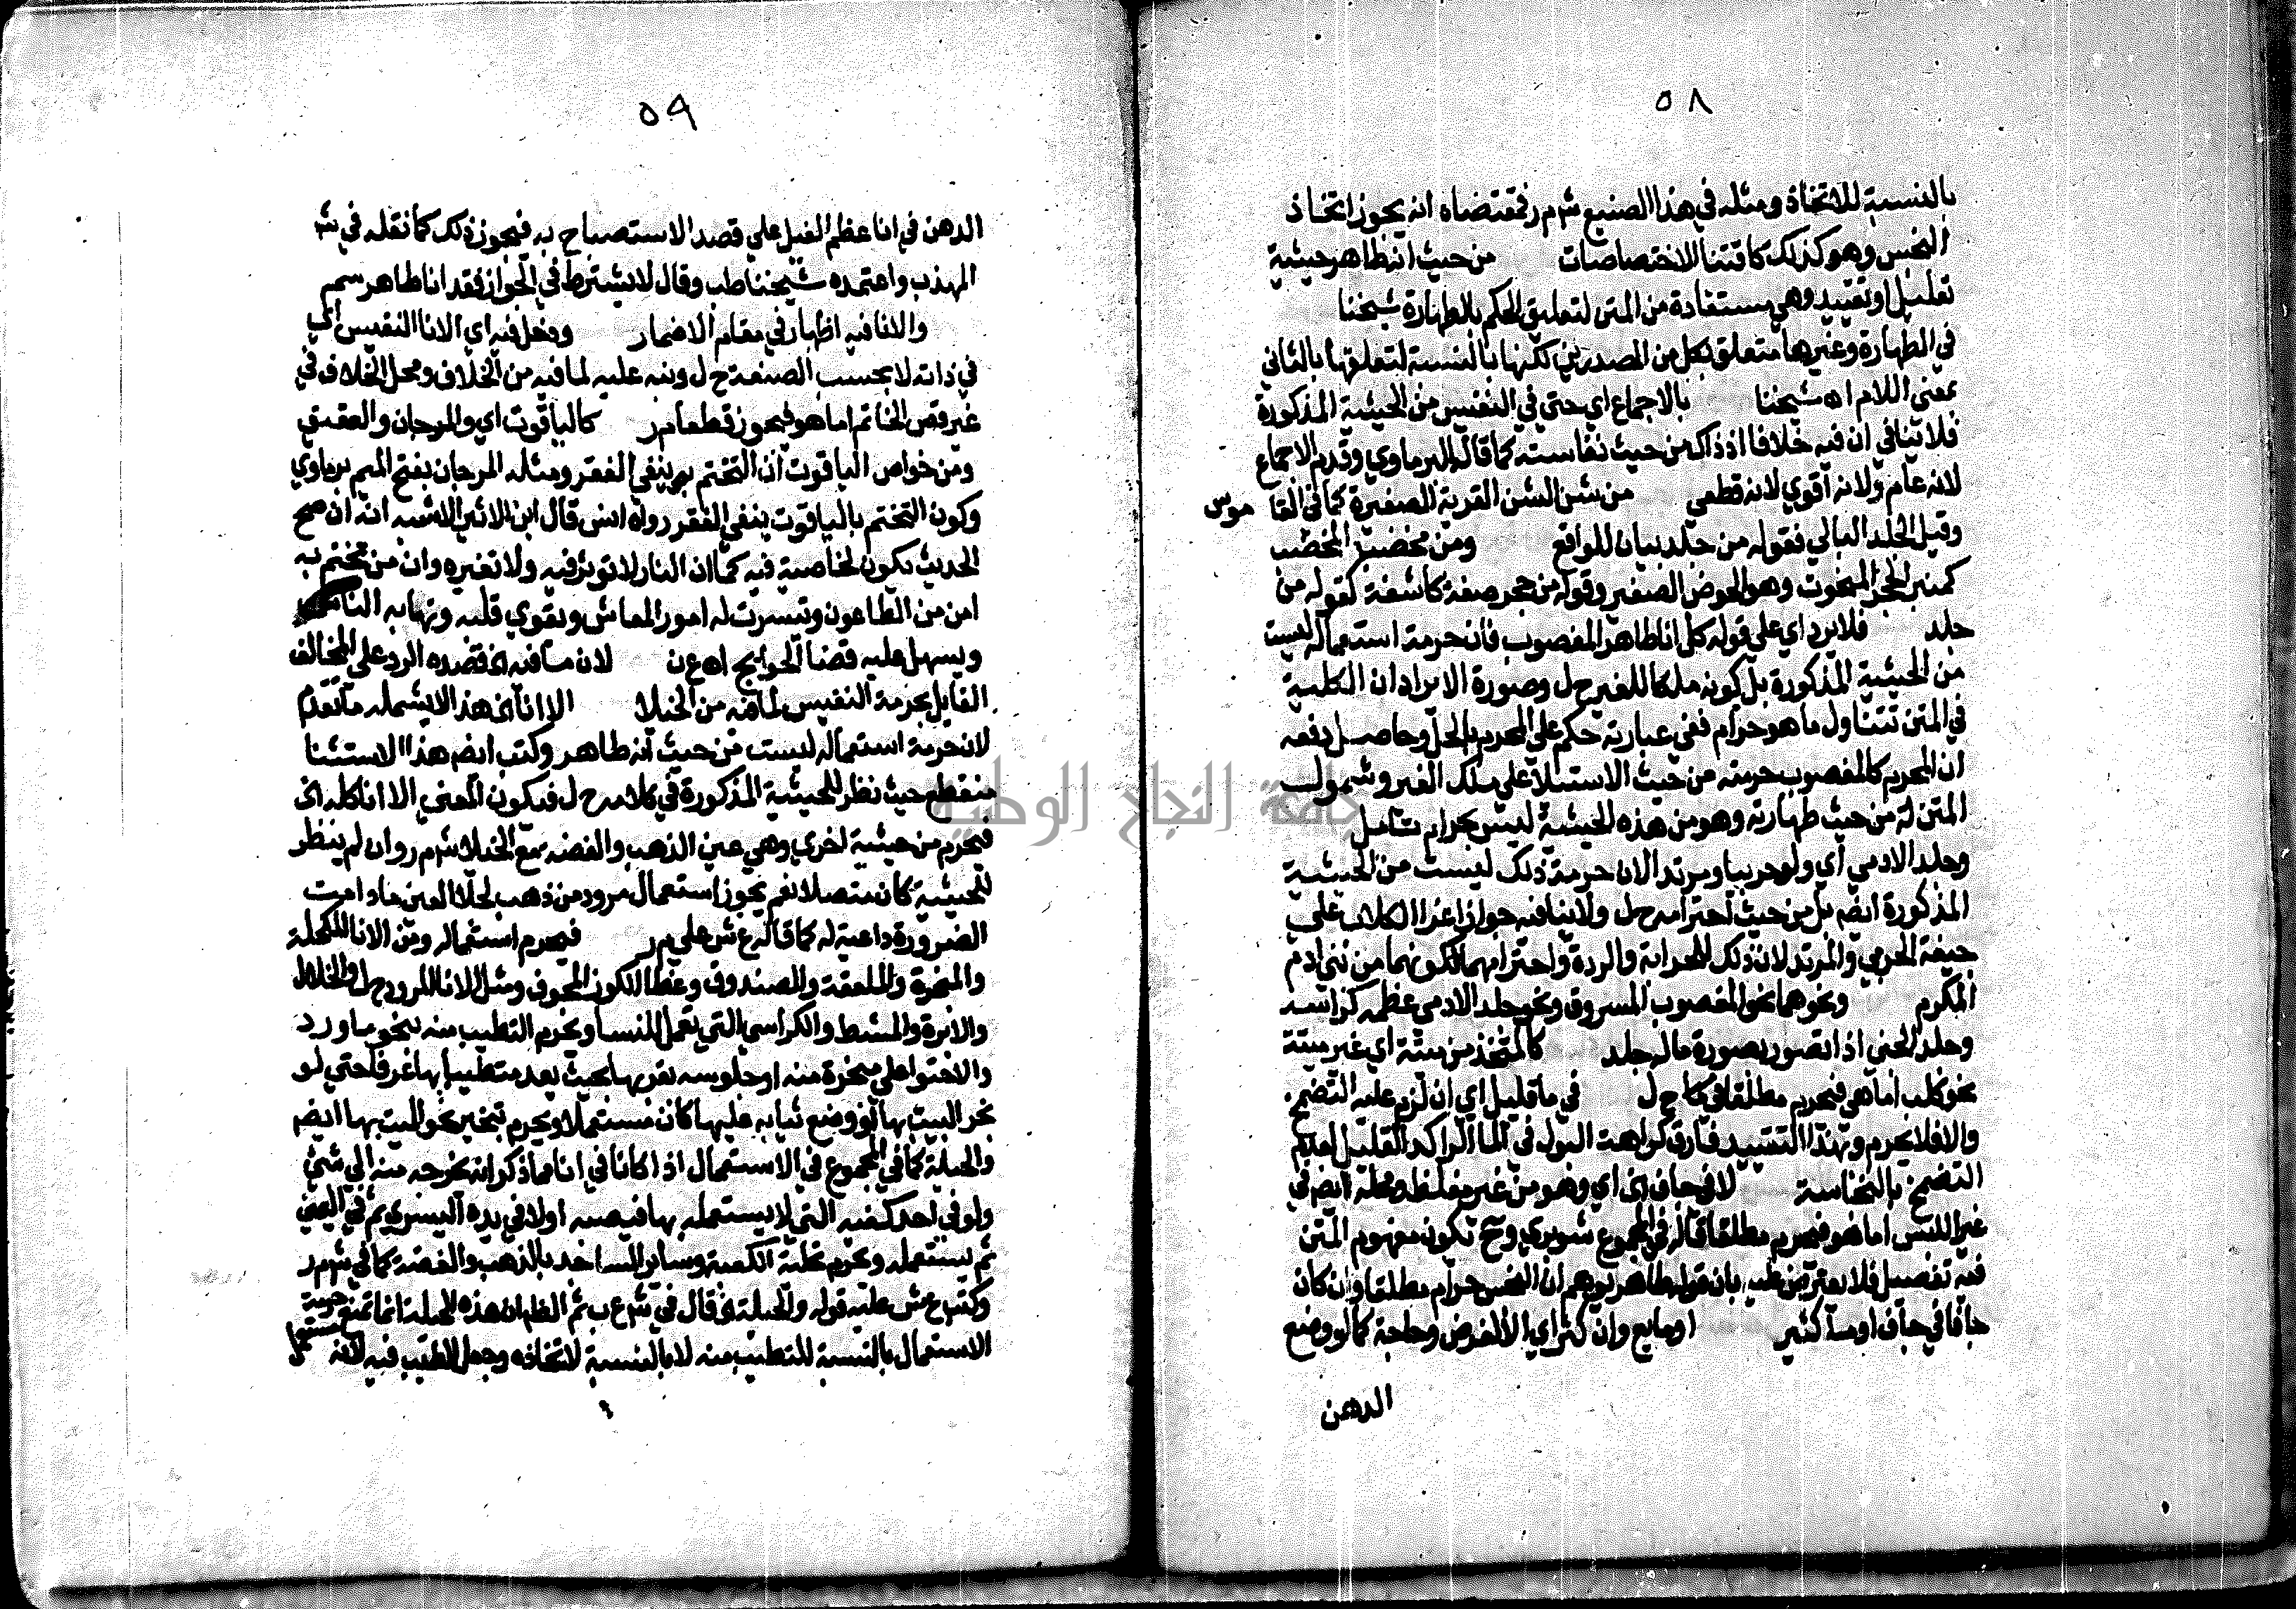 ٥٨
بالنسبة للاتخاذ ومثله في هذا الصنيع ش م ر فمقتضاه انه يجوز اتخاذ
النجس وهو كذلك كاقتنا الاختصاصات من حيث انه طاهر حيثية
تعليل او تقييد وهي مستفادة من المتن لتعليق الحكم بالطهارة شيخنا
في الطهارة وغيرها متعلق بكل من المصدرين لكنها بالنسبة لتعلقها بالثاني
بمعنى اللام اه شيخنا بالاجماع اي حتى في النفيس من الحيثية المذكورة
فلا ينافي ان فيه خلافا اذ ذاك من حيث نفاسته كما قاله البرماوي وقدم الاجماع
لانه عام ولانه اقوي لانه قطعي من شن الشن القربة الصغيرة كما في القاموس
وقيل الجلد البالي فقوله من جلد بيان للواقع ومن مخضب المخضب
كمنبر الحجر المنحوت وهو الحوض الصغير وقوله من حجر صفة كاشفة كقوله من
جلد فلا يرد اي على قوله كل انا طاهر المغصوب فان حرمة استعماله ليست
من الحيثية المذكورة بل كونه ملكا للغير ح ل وصورة الايراد ان الكلية
في المتن تتناول ما هو حرام ففي عبارته حكم على المحرم بالحل وحاصل دفعه
ان المحرم كالمغصوب حرمته من حيث الاستيلا على ملك الغير وشمول
المتن له من حيث طهارته وهو من هذه الحيثية ليس بحرام تامل
وجلد الادمي اي ولو حربيا ومرتد الان حرمة ذلك ليست من الحيثية
المذكورة ايضم بل من حيث احترامه ح ل ولا ينافيه جواز اغرا الكلاب على
جيفة الحربي والمرتد لان ذلك للحرابة والردة واحترامهما لكونهما من بني ادم
المكرم ونحوهما نحو المغصوب المسروق ونحو جلد الادمي عظمه كراسه
وجلد الجني اذا تصور بصورة ماله جلد كالمتخذ من ميتة اي غير ميتة
نحو كلب اما هي فيحرم مطلقا في كا ح ل في ما قليل اي ان لزم عليه التضمخ
والا فلا يحرم وبهذا التقييد فارق كراهت البول في الما الراكد القليل لعدم
التضمخ بالنجاسة لا في جاف اي وهو من غير مغلظ ومحله ايضم في
غير اللبس اما هو فيحرم مطلقا قاله في المجموع شوبري وح تكون مفهوم المتن
فيه تفصيل فلا يعترض عليه بان قوله طاهر يوهم ان النجس حرام مطلقا وان كان
جافا في جاف او ما كثير او مايع وان كثر اي الا لغرض وحاجة كما لو وضع
الدهن
٥٩
الدهن في انا عظم الفيل على قصد الاستصباح به فيجوز ذلك كما نقله في ش
المهذب واعتمده شيخنا طب وقال لا يشترط في الجواز فقد انا طاهر سم
والانا فيه اظهار في مقام الاضمار ودخل فيه اي الانا النفيس اي
في ذاته لا بحسب الصنعة ح ل ونبه عليه لما فيه من الخلاف ومحل الخلاف في
غير فص الخاتم اما هو فيجوز قطعا م ر كالياقوت اي والمرجان والعقيق
ومن خواص الياقوت ان التختم به ينفي الفقر ومثله المرجان بفتح الميم برماوي
وكون التختم بالياقوت ينفي الفقر رواه انس قال ابن الاثير الاشبه انه ان صح
الحديث يكون لخاصية فيه كما ان النار لا توثر فيه ولا تغيره وان من تختم به
امن من الطاعون وتيسرت له امور المعاش ويقوي قلبه وتهابه الناس
ويسهل عليه قضا الحوايج اه ع ن لان ما فيه اي قصده الرد على المخالف
القايل بحرمة النفيس لما فيه من الخيلا الا انا اي هذا لا يشمله ما تقدم
لان حرمة استعماله ليست من حيث انه طاهر وكتب ايضم هذا الاستثنا
منقطع حيث نظر للحيثية المذكورة في كلامه ح ل فيكون المعنى الا انا كله اي
فيحرم من حيثية اخري وهي عين الذهب والفضة مع الخيلا ش م ر وان لم ينظر
للحيثية كان متصلا نعم يجوز استعمال مرود من ذهب لجلا العين ما دامت
الضرورة داعية له كما قاله ع ش على م ر فيحرم استعماله ومن الانا المكحلة
والمبخرة والملعقة والصندوق وغطا الكوز المجوف ومثل الانا المرود ح ل والخلال
والابرة والمشط والكراسي التي تعمل للنسا ويحرم التطيب منه بنحو ما ورد
والاحتوا على مبخرة منه او جلوسه بقربها بحيث يعد متطيبا بها عرفا حتى لو
بخر البيت بها او وضع ثيابه عليها كان مستعملا ويحرم تبخير نحو الميت بها ايضم
والحيلة كما في المجموع في الاستعمال اذا كانا في انا مما ذكر ان يخرجه منه الي شي
ولو في احد كفيه التي لا يستعمله بها فيصبه اولا في يده اليسري ثم في اليمني
ثم يستعمله ويحرم تحلية الكعبة وساير المساجد بالذهب والفضة كما في ش م ر
وكتب ع ش عليه قوله والحيلة الخ قال في ش ع ب ثم الظاهر ان هذه الحيلة انما تمنع حرمة
الاستعمال بالنسبة للتطيب منه لا بالنسبة لاتخاذه وجعل الطيب فيه لانه مستعمل
جامعة النجاح الوطنية